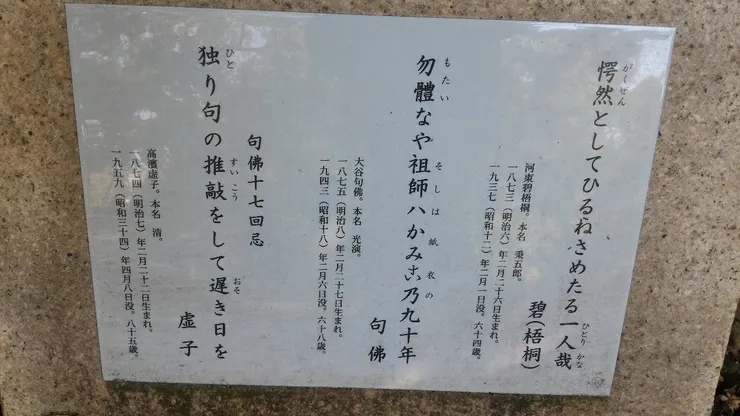 がくぜん ひとり かな
愕然としてひるねさめたる一人哉
碧(梧桐)
河東碧梧桐。本名 秉五郎。
一八七三(明治六)年二月二十六日生まれ。
一九三七(昭和十二)年二月一日没。六十四歳。
もたい そしは 紙衣の
勿體なや祖師ハかみこ乃九十年
句佛
大谷句佛。本名 光演。
一八七五(明治八)年二月二十七日生まれ。
一九四三(昭和十八)年二月六日没。六十八歳。
句佛十七回忌
ひと すいこう おそ
独り句の推敲をして遅き日を
虚子
高濱虚子。本名 清。
一八七四(明治七)年二月二十二日生まれ。
一九五九(昭和三十四)年四月八日没。八十五歳。